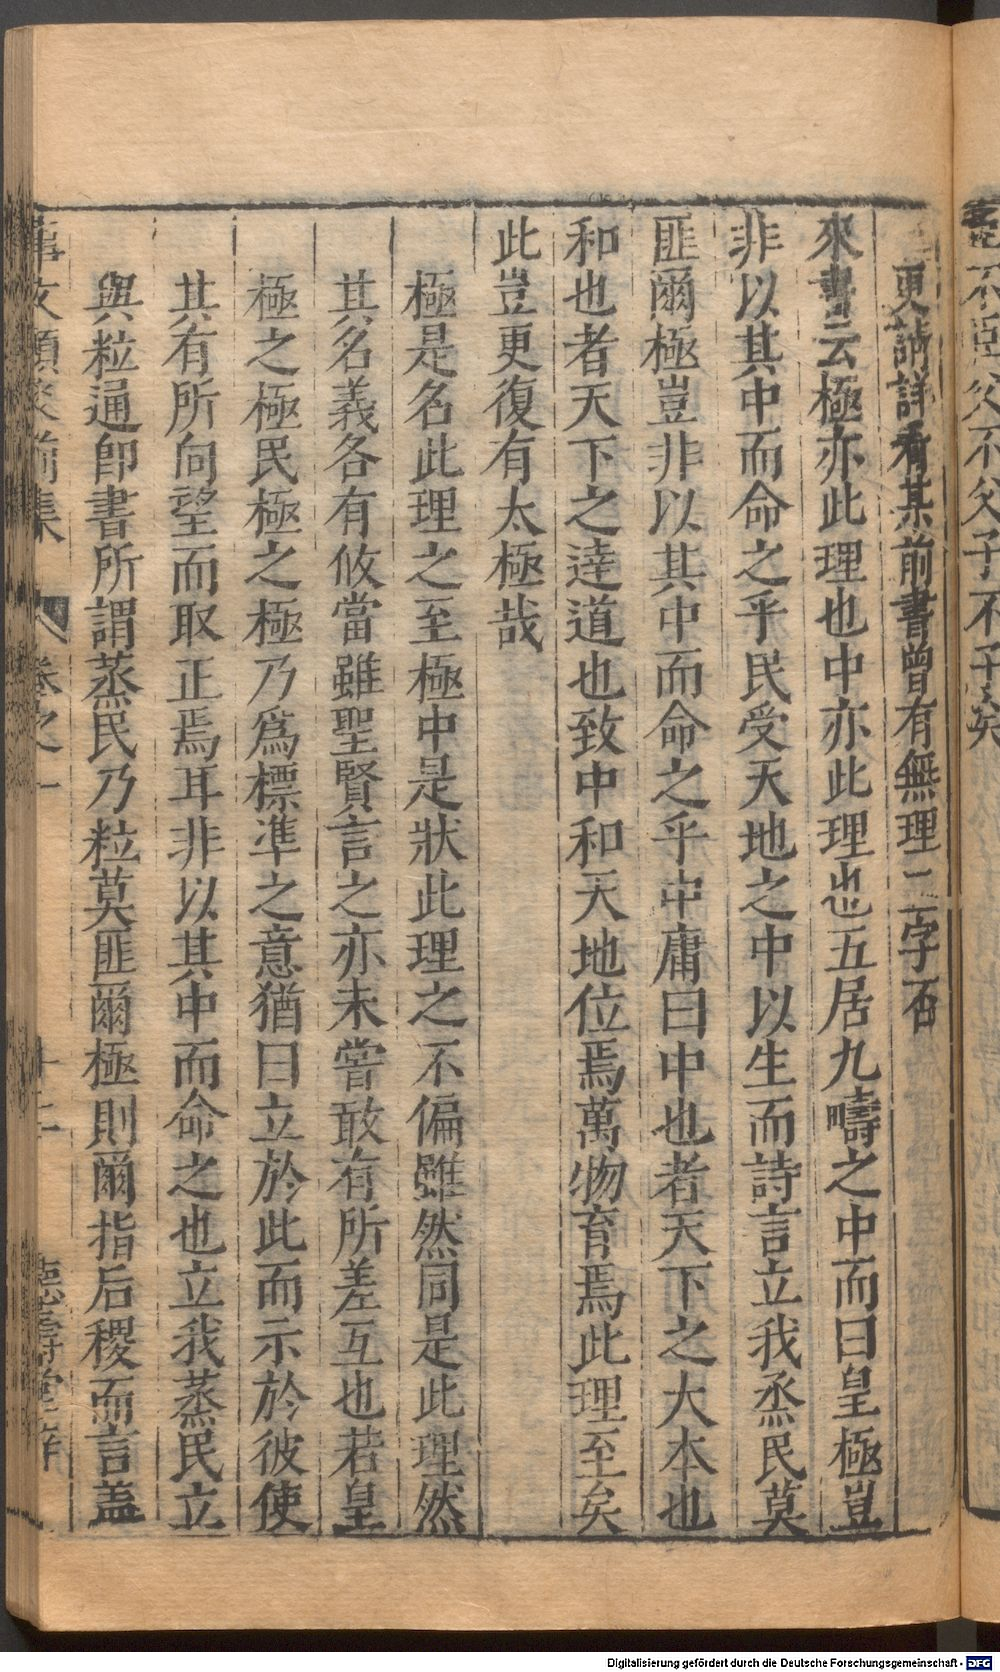 不父子不子矣
更請詳看某前書曾有無理二字否
來書云極亦此理也中亦此理也五居九疇之中而曰皇極豈
非以其中而命之乎民受天地之中以生而詩言立我烝民莫
匪爾極豈非以其中而命之乎中庸曰中也者天下之大本也
和也者天下之達道也致中和天地位焉萬物育焉此理至矣
此豈更復有太極哉
極是名此理之至極中是狀此理之不偏雖然同是此理然
其名義各有攸當雖聖賢言之亦未嘗敢有所差互也若皇
極之極民極之極乃爲標準之意猶曰立於此而示於彼使
其有所向望而取正焉耳非以其中而命之也立我蒸民立
與粒通卽書所謂蒸民乃粒莫匪爾極則爾指后稷而言盖
集
Digitalisierung gefördert durch die Deutsche Forschungsgemeinschaft - DFG